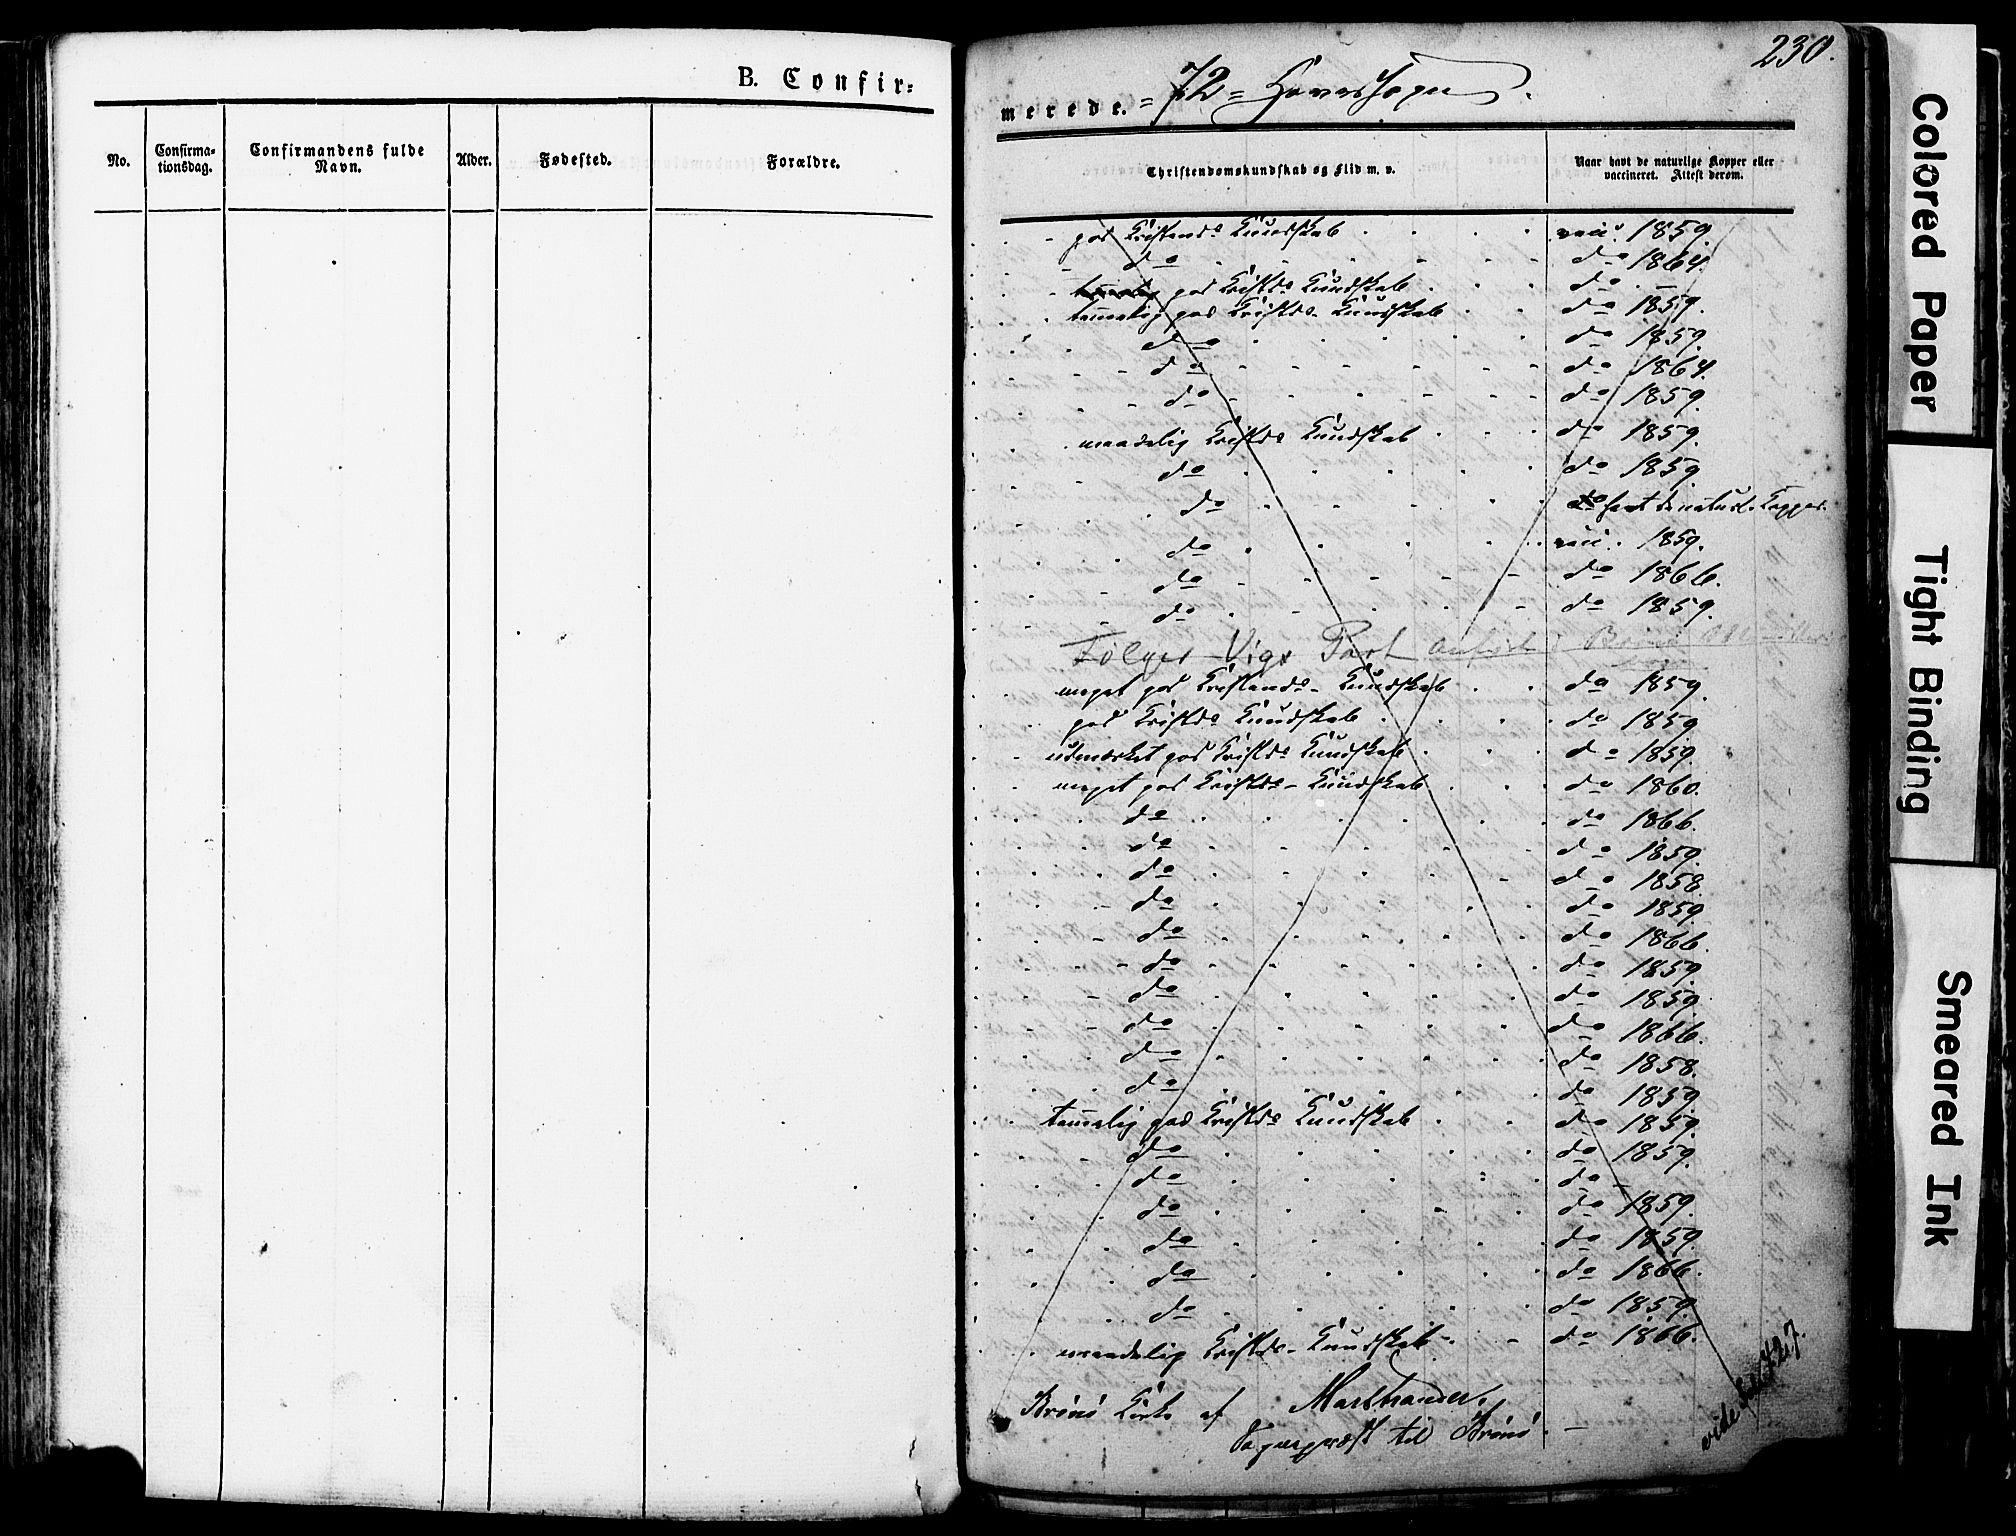 B. Confir=
No.
Confirma-
tionsdag.
Confirmandens fulde
Navn.
Alder.
Fødested.
Forældre.
230.
merede. = 72 =
Christendomskundskab og Flid m. v.
Naar havt de naturlige Kopper eller
vaccineret. Attest derom.
god Kristends Kundskab vacc. 1859.
do do 1864.
god Kristds Kundskab do –
temmelig god Kristds Kundskab do 1859.
do do 1859.
do do 1864.
do do 1859.
maadelig Kristds Kundskab do 1859.
do do 1859.
do havt de naturl. Kopper.
do vacc. 1859.
do do 1866.
do do 1859.
Følger Vigs Part anført i
meget god Kristends Kundskab do 1859.
god Kristds Kundskab do 1859
udmærket god Kristds Kundskab do 1859.
meget god Kristds Kundskab do 1860.
do do 1866.
do do 1859.
do do 1858
do do 1859
do do 1866.
do do 1859
do do 1859.
do do 1866.
do do 1858.
do do 1859
temmelig god Kristds Kundskab do 1859.
do do 1859.
do do –
do do 1859.
do do 1859.
do do 1866.
do do 1859.
maadelig Kristds Kundskab do 1866.
Brønø Kirke af Marstrander,
Sognepræst til Brønø. –
vide 427.
Colored Paper
Tight Binding
Smeared Ink